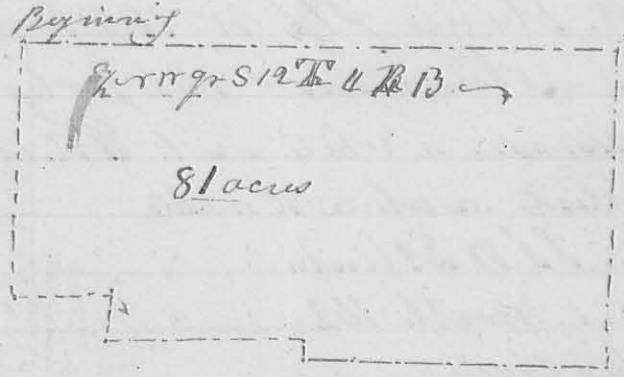 Beginning
qr S 12 T 4 R 13
81 acres